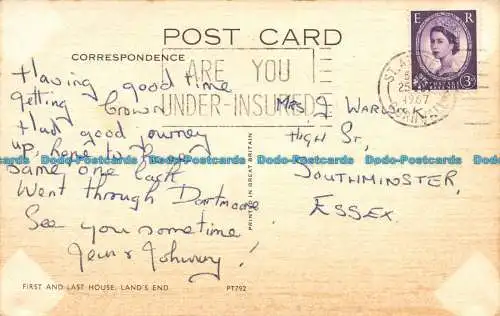 POST CARD
E R
3D
CORRESPONDENCE
ARE YOU
UNDER-INSURED
ST.A
25
1967
Having good time
getting brown
Had good journey
up, hope to have
same one back
Went through Dartmoor
See you sometime
Jean & Johnny!
Mrs J Warwick
High St,
Southminster,
Essex.
PRINTED IN GREAT BRITAIN
Dodo-Postcards Dodo-Postcards Dodo-Postcards Dodo-Postcards
FIRST AND LAST HOUSE, LAND'S END.
PT792